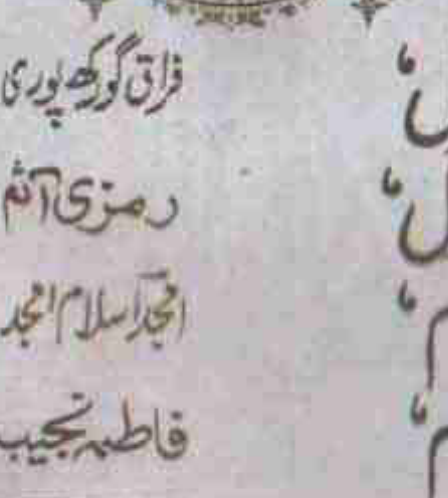 فراق گورکھ پوری
رمزی آثم
امجد اسلام امجد
فاطمہ نجیب